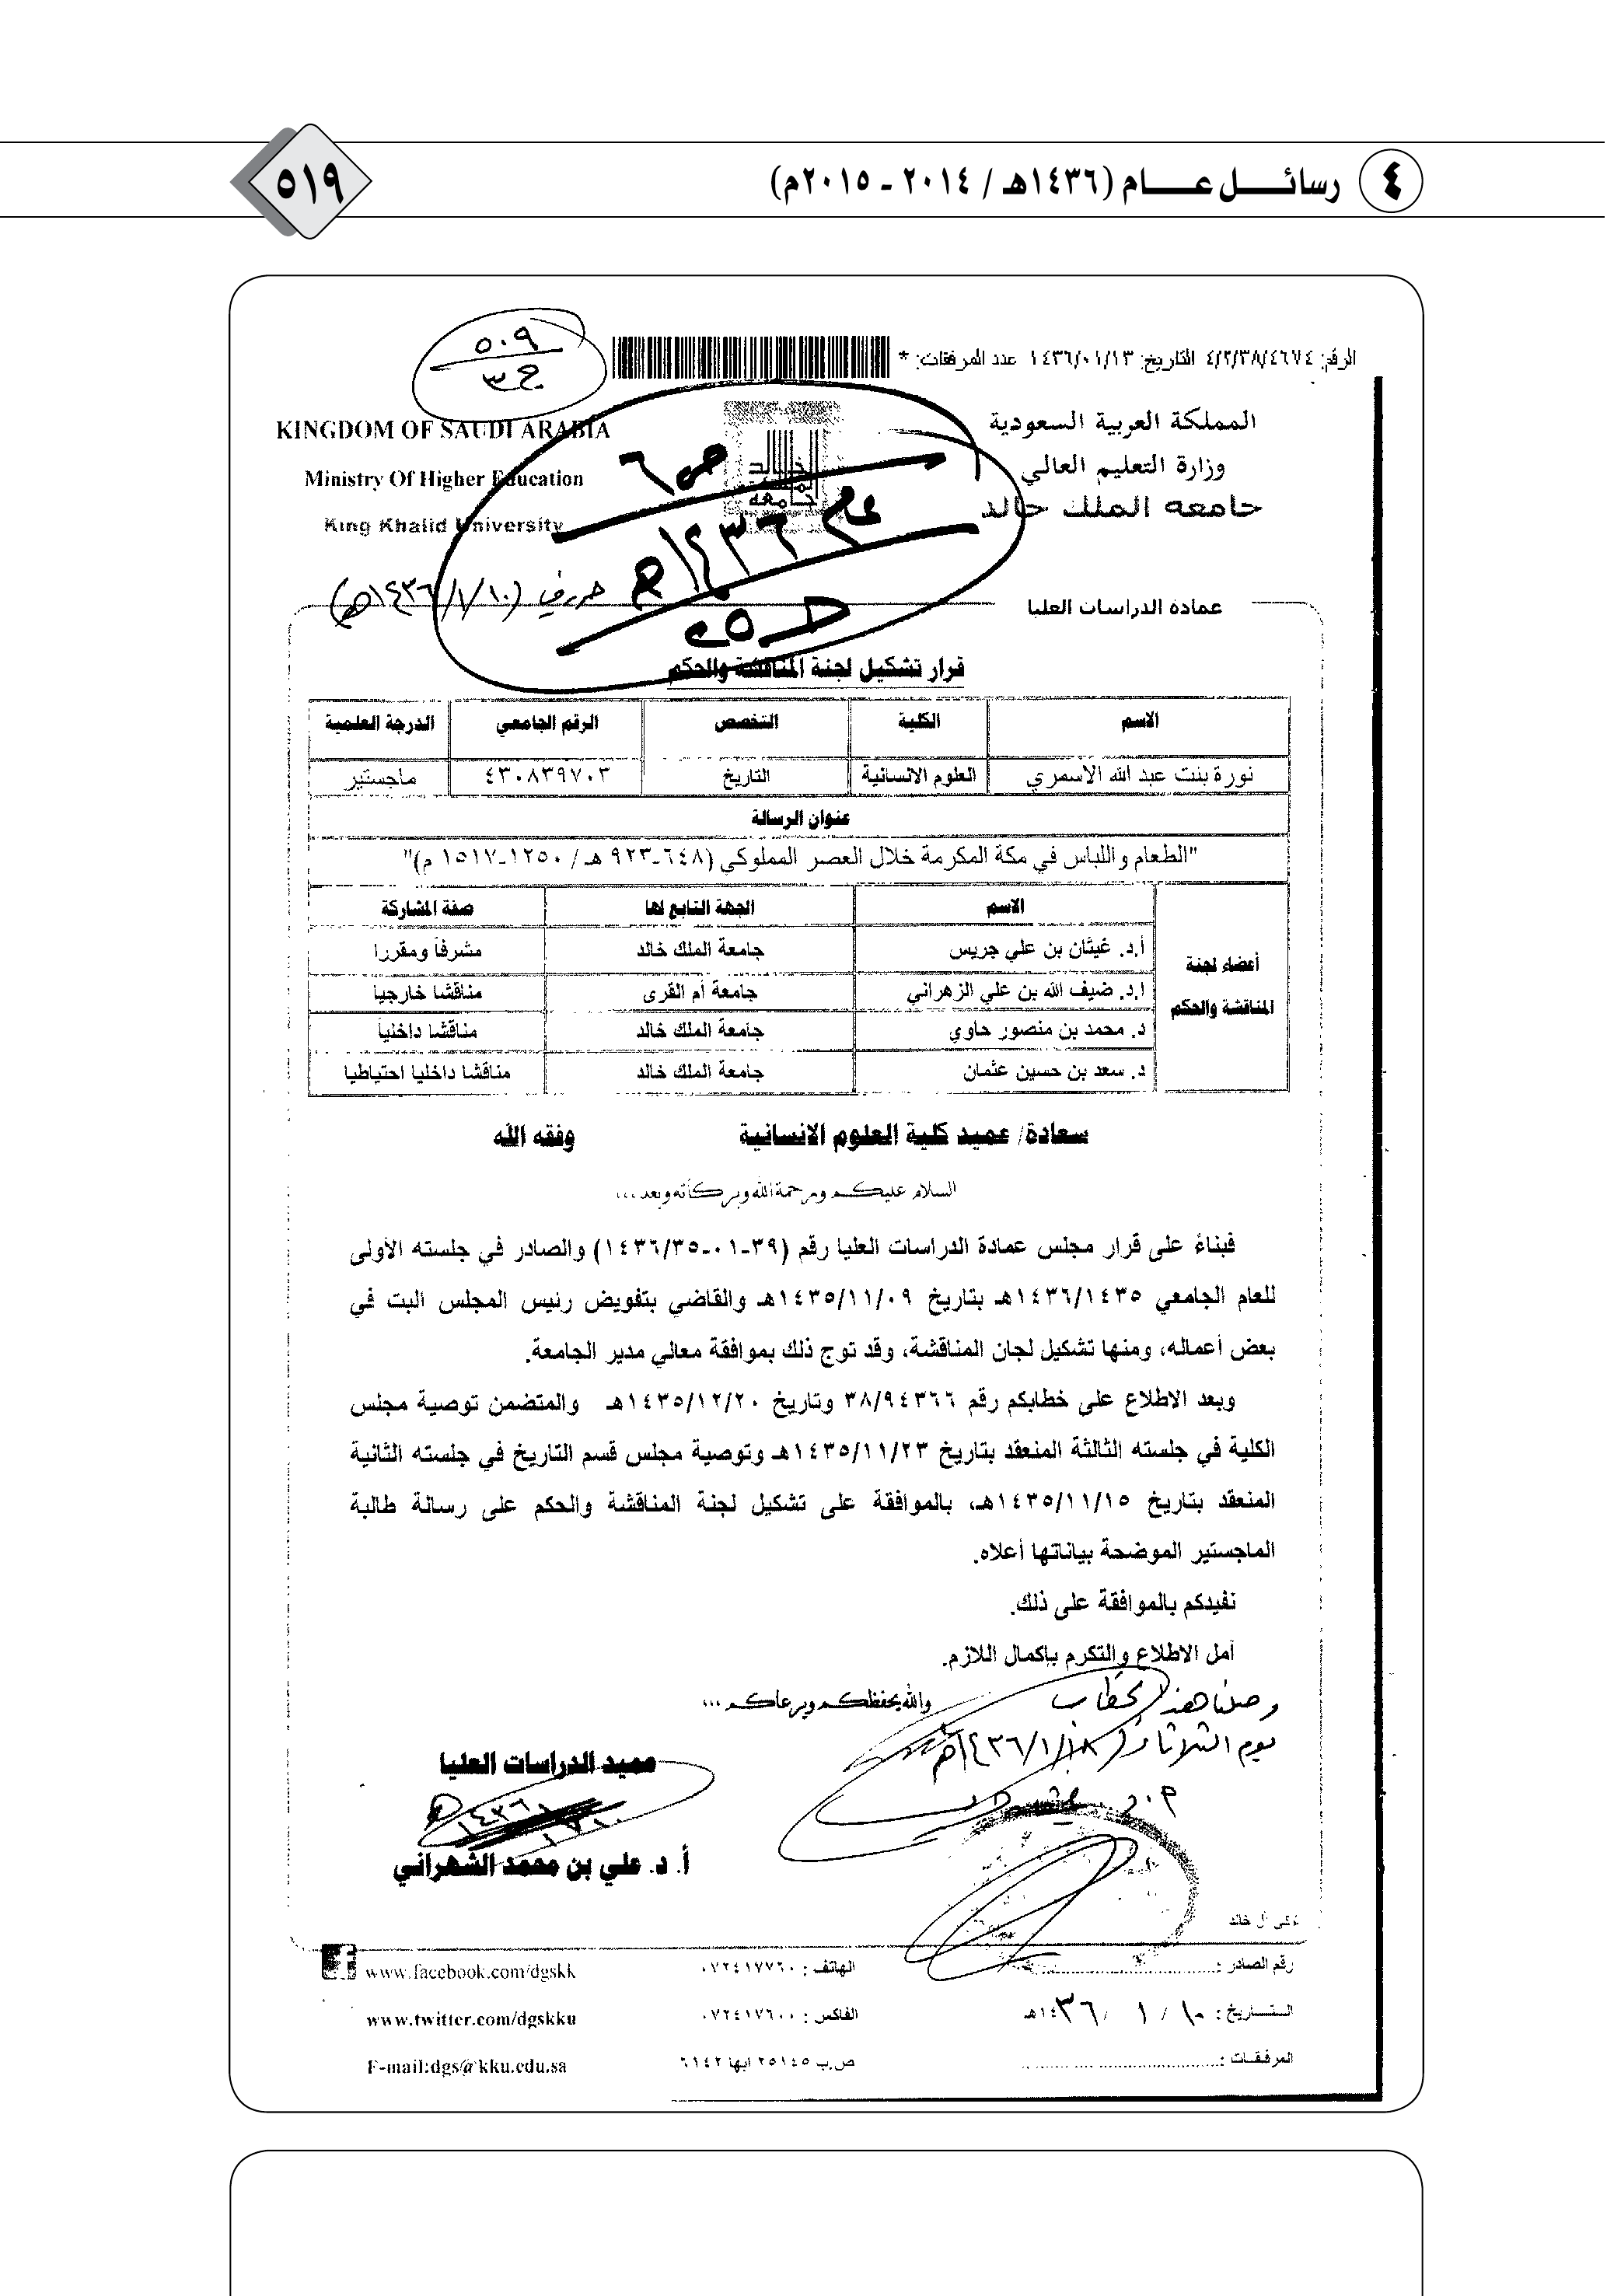 ٤ رسائل عام (١٤٣٦هـ / ٢٠١٤ - ٢٠١٥م)
٥١٩
الرقم: ٤/٢/٣٨/٤٦٧٤ التاريخ: ١٤٣٦/٠١/١٣ عدد المرفقات: *
٥٠٩
ج ٣
المملكة العربية السعودية
وزارة التعليم العالي
جامعة الملك خالد
KINGDOM OF SAUDI ARABIA
Ministry Of Higher Education
King Khalid University
عام ١٤٣٦هـ
(١٤٣٦/١/١٠هـ)
عمادة الدراسات العليا
قرار تشكيل لجنة المناقشة والحكم
الاسم الكلية التخصص الرقم الجامعي الدرجة العلمية
نورة بنت عبد الله الاسمري العلوم الانسانية التاريخ ٤٣٠٨٣٩٧٠٣ ماجستير
عنوان الرسالة
"الطعام واللباس في مكة المكرمة خلال العصر المملوكي (٦٤٨-٩٢٣ هـ / ١٢٥٠-١٥١٧ م)"
أعضاء لجنة المناقشة والحكم
الاسم الجهة التابع لها صفة المشاركة
أ.د. غيثان بن علي جريس جامعة الملك خالد مشرفاً ومقررا
ا.د. ضيف الله بن علي الزهراني جامعة أم القرى مناقشا خارجيا
د. محمد بن منصور حاوي جامعة الملك خالد مناقشا داخلياً
د. سعد بن حسين عثمان جامعة الملك خالد مناقشا داخليا احتياطيا
سعادة/ عميد كلية العلوم الانسانية وفقه الله
السلام عليكم ورحمة الله وبركاته وبعد ...
فبناءً على قرار مجلس عمادة الدراسات العليا رقم (٣٩-٠١-١٤٣٦/٣٥) والصادر في جلسته الأولى
للعام الجامعي ١٤٣٦/١٤٣٥هـ بتاريخ ١٤٣٥/١١/٠٩هـ والقاضي بتفويض رئيس المجلس البت في
بعض أعماله، ومنها تشكيل لجان المناقشة، وقد توج ذلك بموافقة معالي مدير الجامعة.
وبعد الاطلاع على خطابكم رقم ٣٨/٩٤٣٦٦ وتاريخ ١٤٣٥/١٢/٢٠هـ والمتضمن توصية مجلس
الكلية في جلسته الثالثة المنعقد بتاريخ ١٤٣٥/١١/٢٣هـ وتوصية مجلس قسم التاريخ في جلسته الثانية
المنعقد بتاريخ ١٤٣٥/١١/١٥هـ، بالموافقة على تشكيل لجنة المناقشة والحكم على رسالة طالبة
الماجستير الموضحة بياناتها أعلاه.
نفيدكم بالموافقة على ذلك.
أمل الاطلاع والتكرم بإكمال اللازم.
والله يحفظكم ويرعاكم ...
وصلنا هذا الخطاب
يوم الثلاثاء (١٤٣٦/١/١٨هـ)
عميد الدراسات العليا
أ. د. علي بن محمد الشهراني
رقم الصادر :
الهاتف : ٠٧٢٤١٧٧٦٠
www.facebook.com/dgskk
التاريخ : ١٠ / ١ / ١٤٣٦هـ
الفاكس : ٠٧٢٤١٧٦٠٠
www.twitter.com/dgskku
المرفقات :
ص.ب ٢٥١٤٥ ابها ٦١٤٢
E-mail:dgs@kku.edu.sa